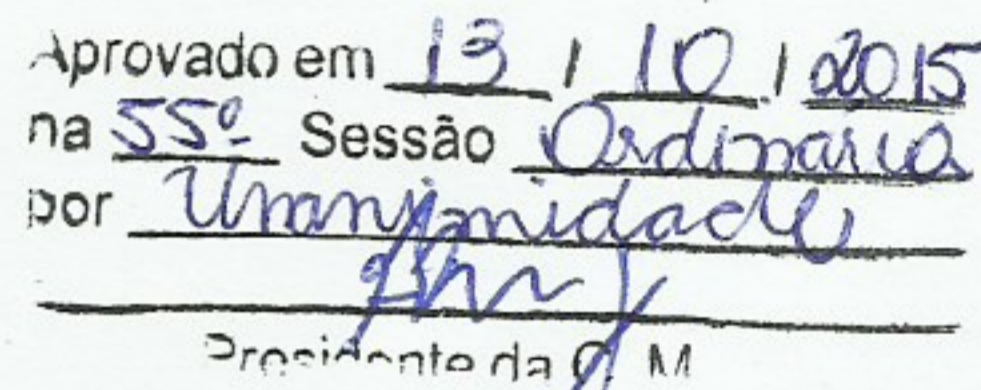 Aprovado em 13 / 10 / 2015
na 55º Sessão Ordinaria
por Unanimidade
Presidente da C. M